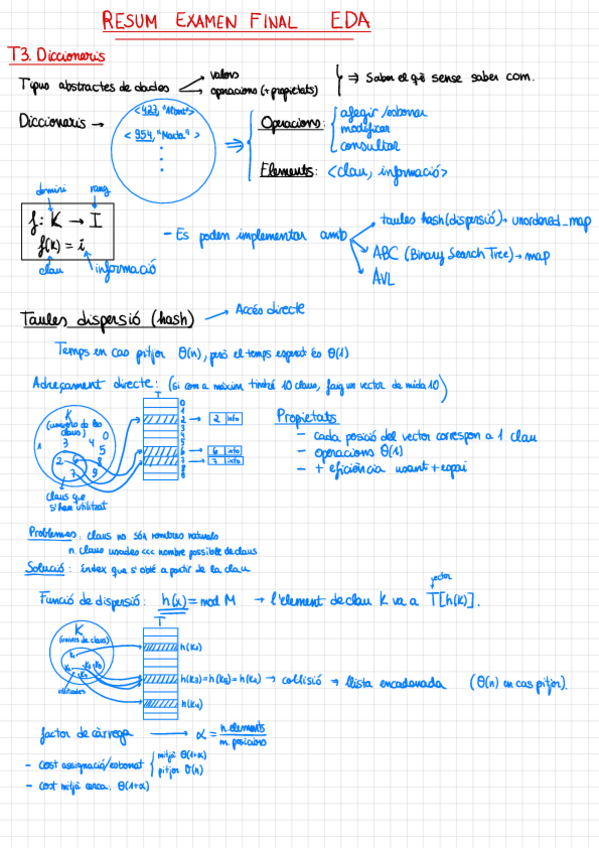 RESUM EXAMEN FINAL EDA
T3. Diccionaris
Tipus abstractes de dades
valors
operacions (+ propietats)
⇒ Saber el què sense saber com.
Diccionaris →
<423, "Albert">
<954, "Marta">
⇒
Operacions:
afegir/esborrar
modificar
consultar
Elements: <clau, informació>
domini
rang
f: K → I
f(k) = i
clau
informació
- Es poden implementar amb
taules hash (dispersió) → unordered_map
ABC (Binary Search Tree) → map
AVL
Taules dispersió (hash)
→ Accés directe
Temps en cas pitjor Θ(n), però el temps esperat és Θ(1)
Adreçament directe: (si com a màxim tindré 10 claus, faig un vector de mida 10)
T
K
(univers de les claus)
0
1
3
4
5
2
6
8
7
9
claus que s'han utilitzat
0
1
2
3
4
5
6
7
8
9
2 info
6 info
7 info
Propietats
- cada posició del vector correspon a 1 clau
- operacions Θ(1)
- + eficiència usant + espai
Problemes: claus no són nombres naturals
n. claus usades <<< nombre possible de claus
Solució: índex que s'obté a partir de la clau
vector
Funció de dispersió: h(x) = mod M → l'element de clau K va a T[h(K)].
T
K
(univers de claus)
utilitzades
h(k2)
h(k3) = h(k5) = h(k1) → col·lisió → llista encadenada (Θ(n) en cas pitjor).
h(k4)
factor de càrrega → α = n.elements / m.posicions
- cost assignació/esborrat
mitjà Θ(1+α)
pitjor Θ(n)
- cost mitjà cerca: Θ(1+α)